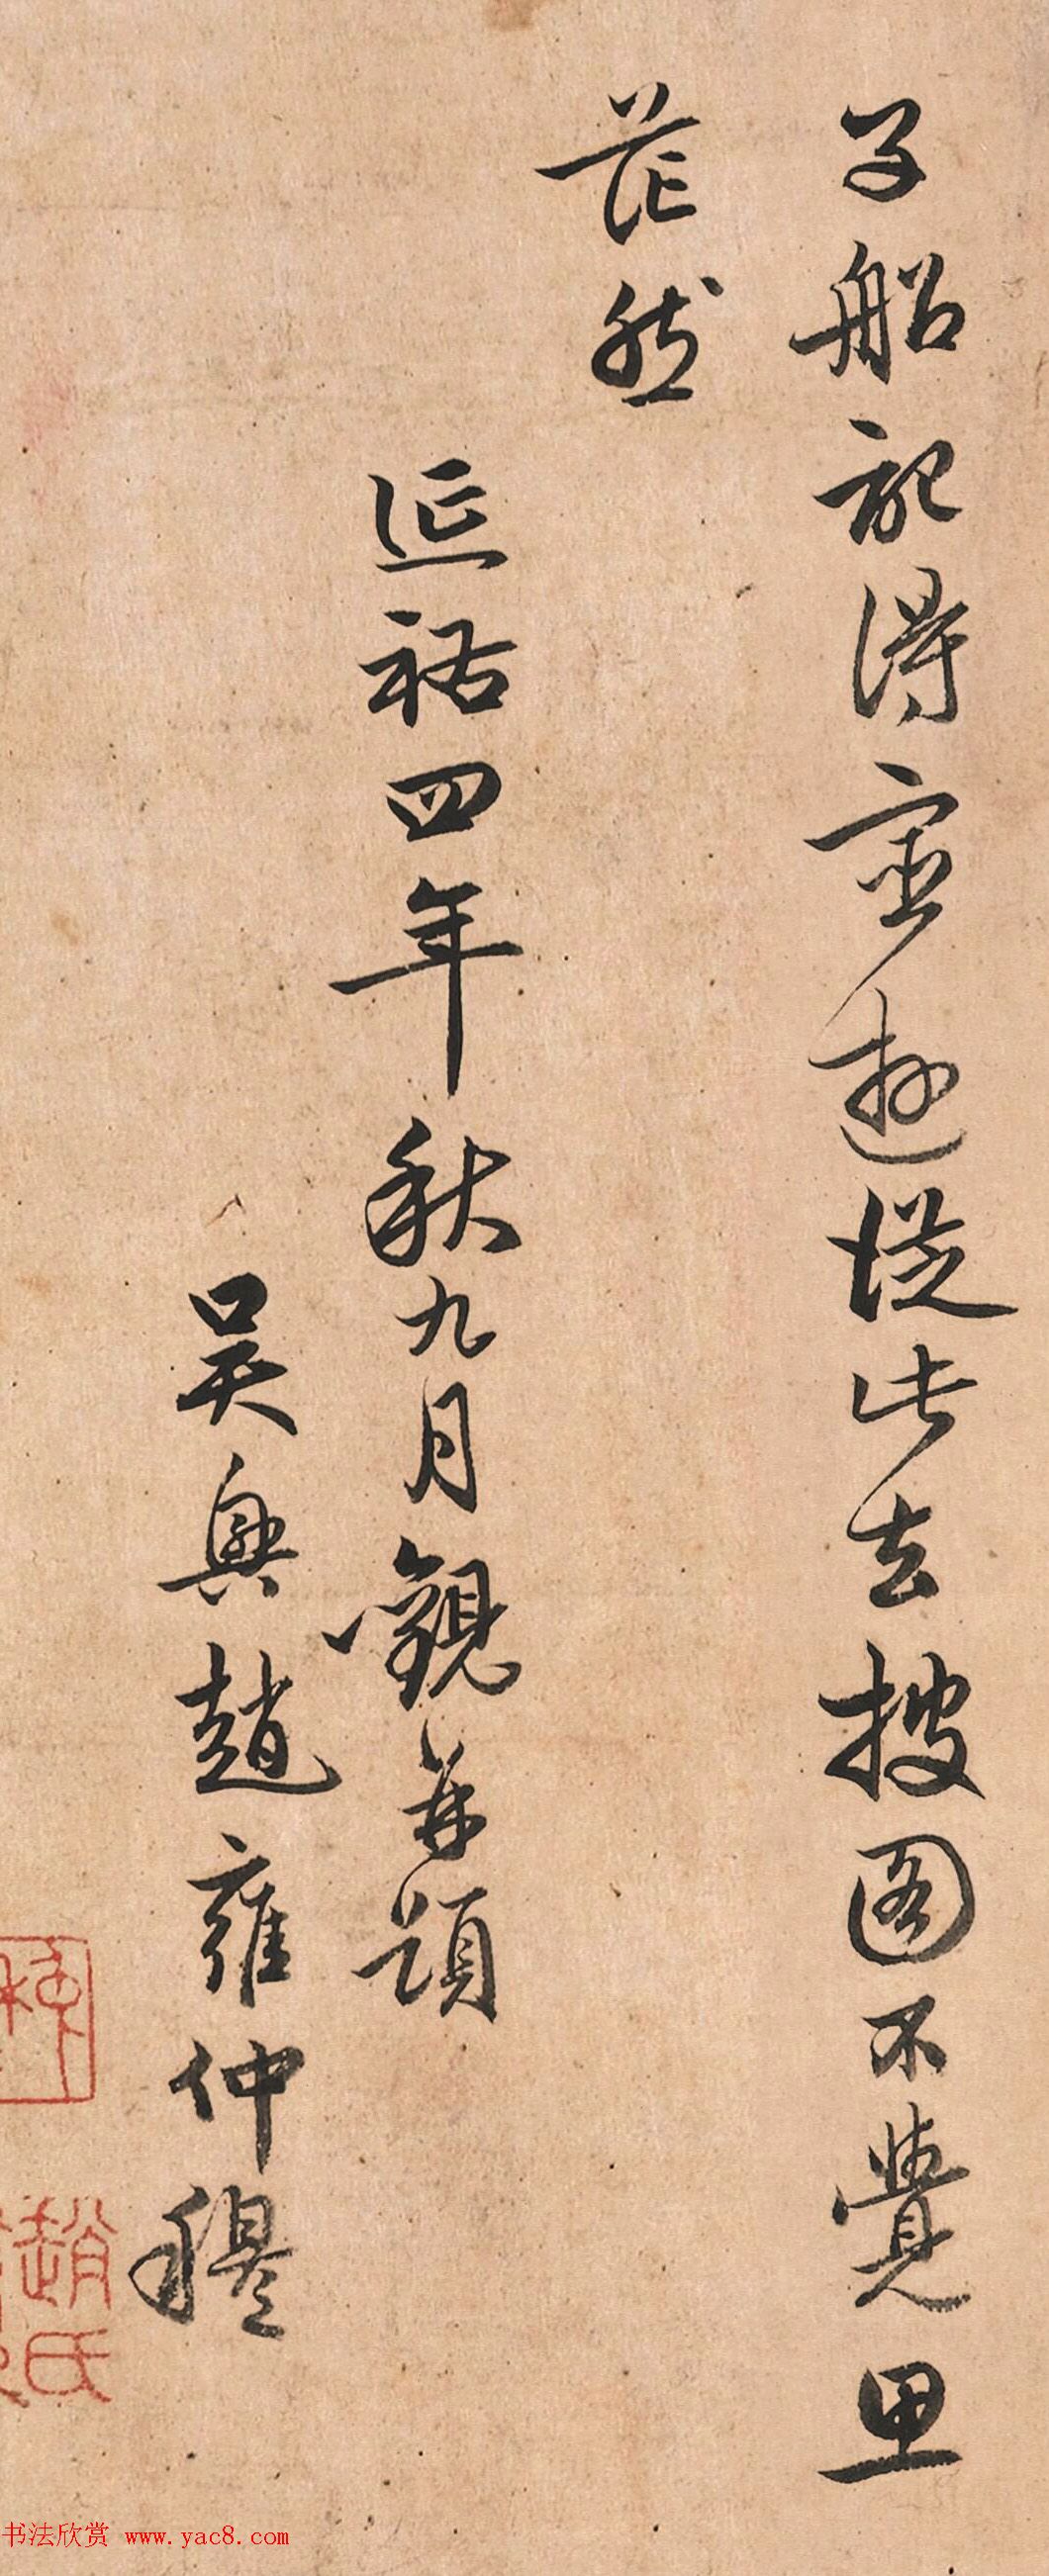 子船記得宦遊從此去披圖不覺思
茫然
延祐四年秋九月觀并題
吳興趙雍仲穆
趙氏
书法欣赏 www.yac8.com